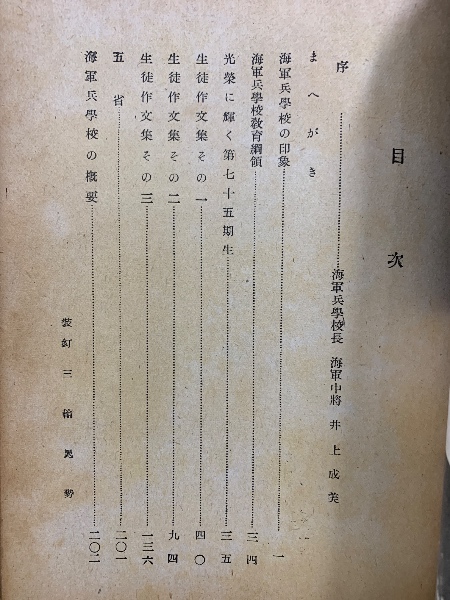 目次
序……海軍兵學校長 海軍中將 井上成美
まへがき
海軍兵學校の印象……一
海軍兵學校敎育綱領……三四
光榮に輝く第七十五期生……三五
生徒作文集その一……四〇
生徒作文集その二……九四
生徒作文集その三……一三六
五省……二〇一
海軍兵學校の槪要……二〇二
裝釘 三